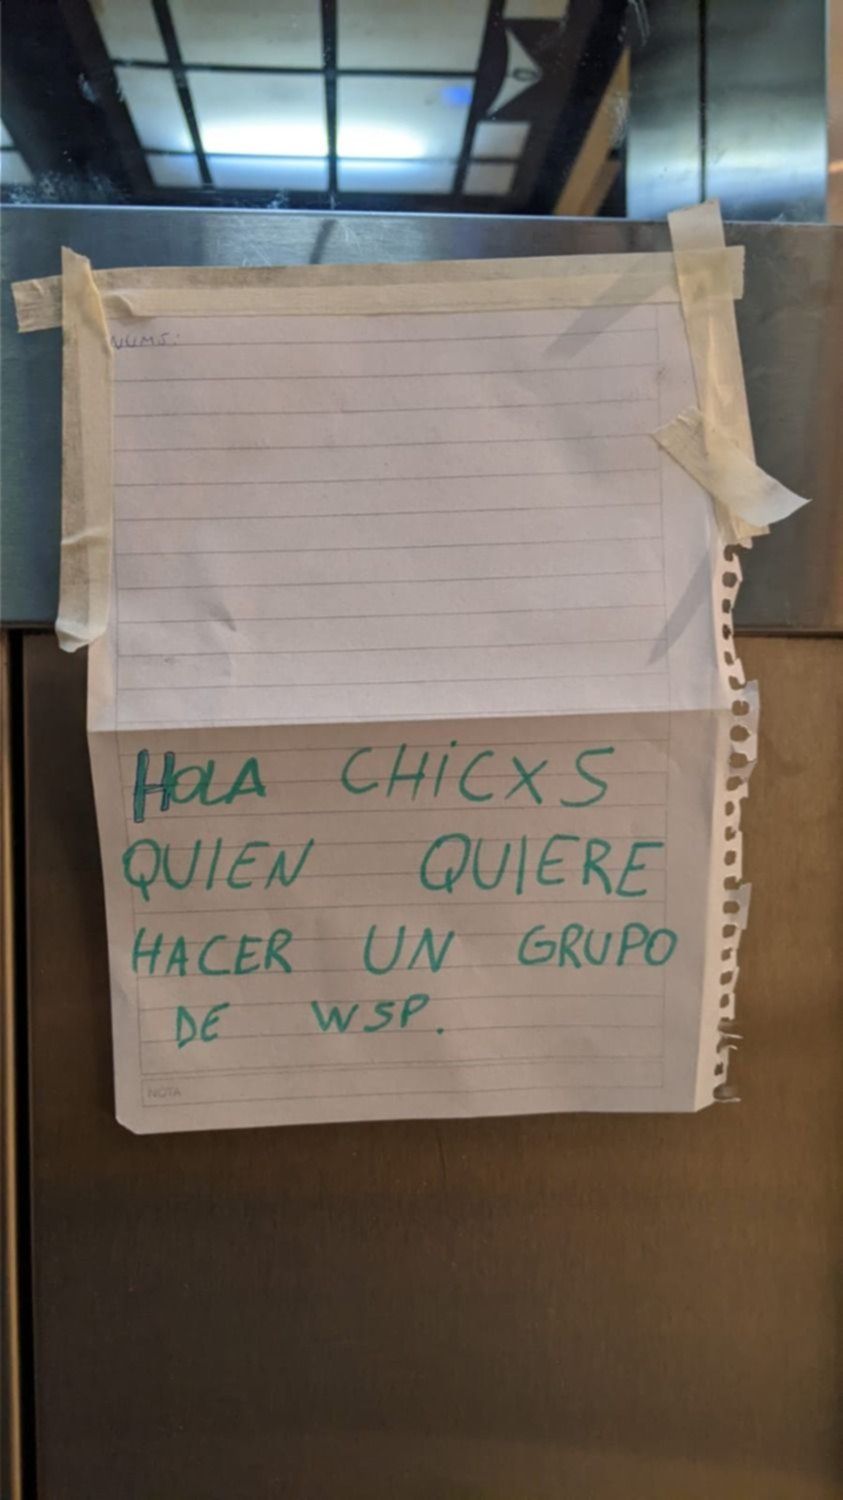 NUMS:
HOLA CHICXS
QUIEN QUIERE
HACER UN GRUPO
DE WSP.
NOTA